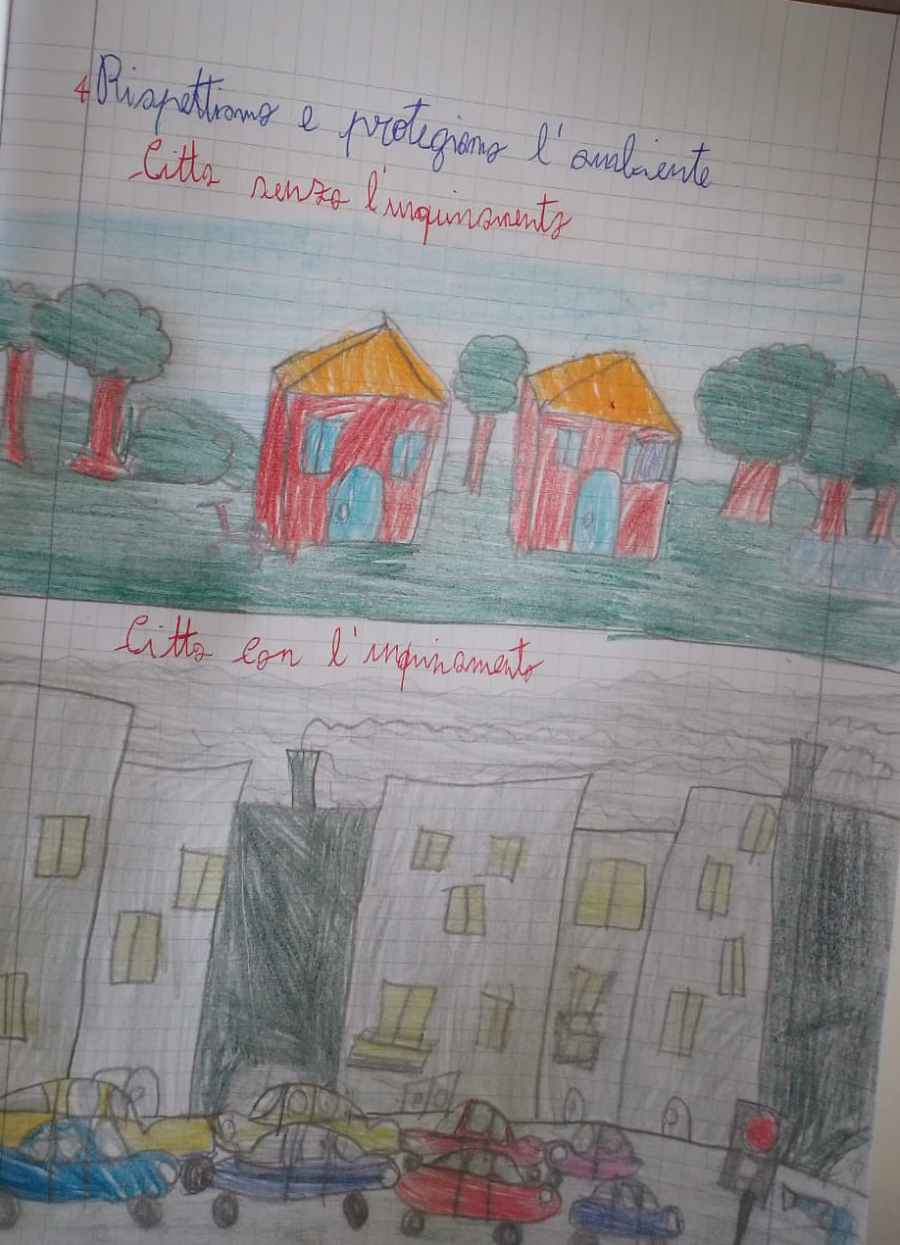 4 Rispettiamo e protegiamo l'ambiente
Città senza l'inquinamento
Città con l'inquinamento